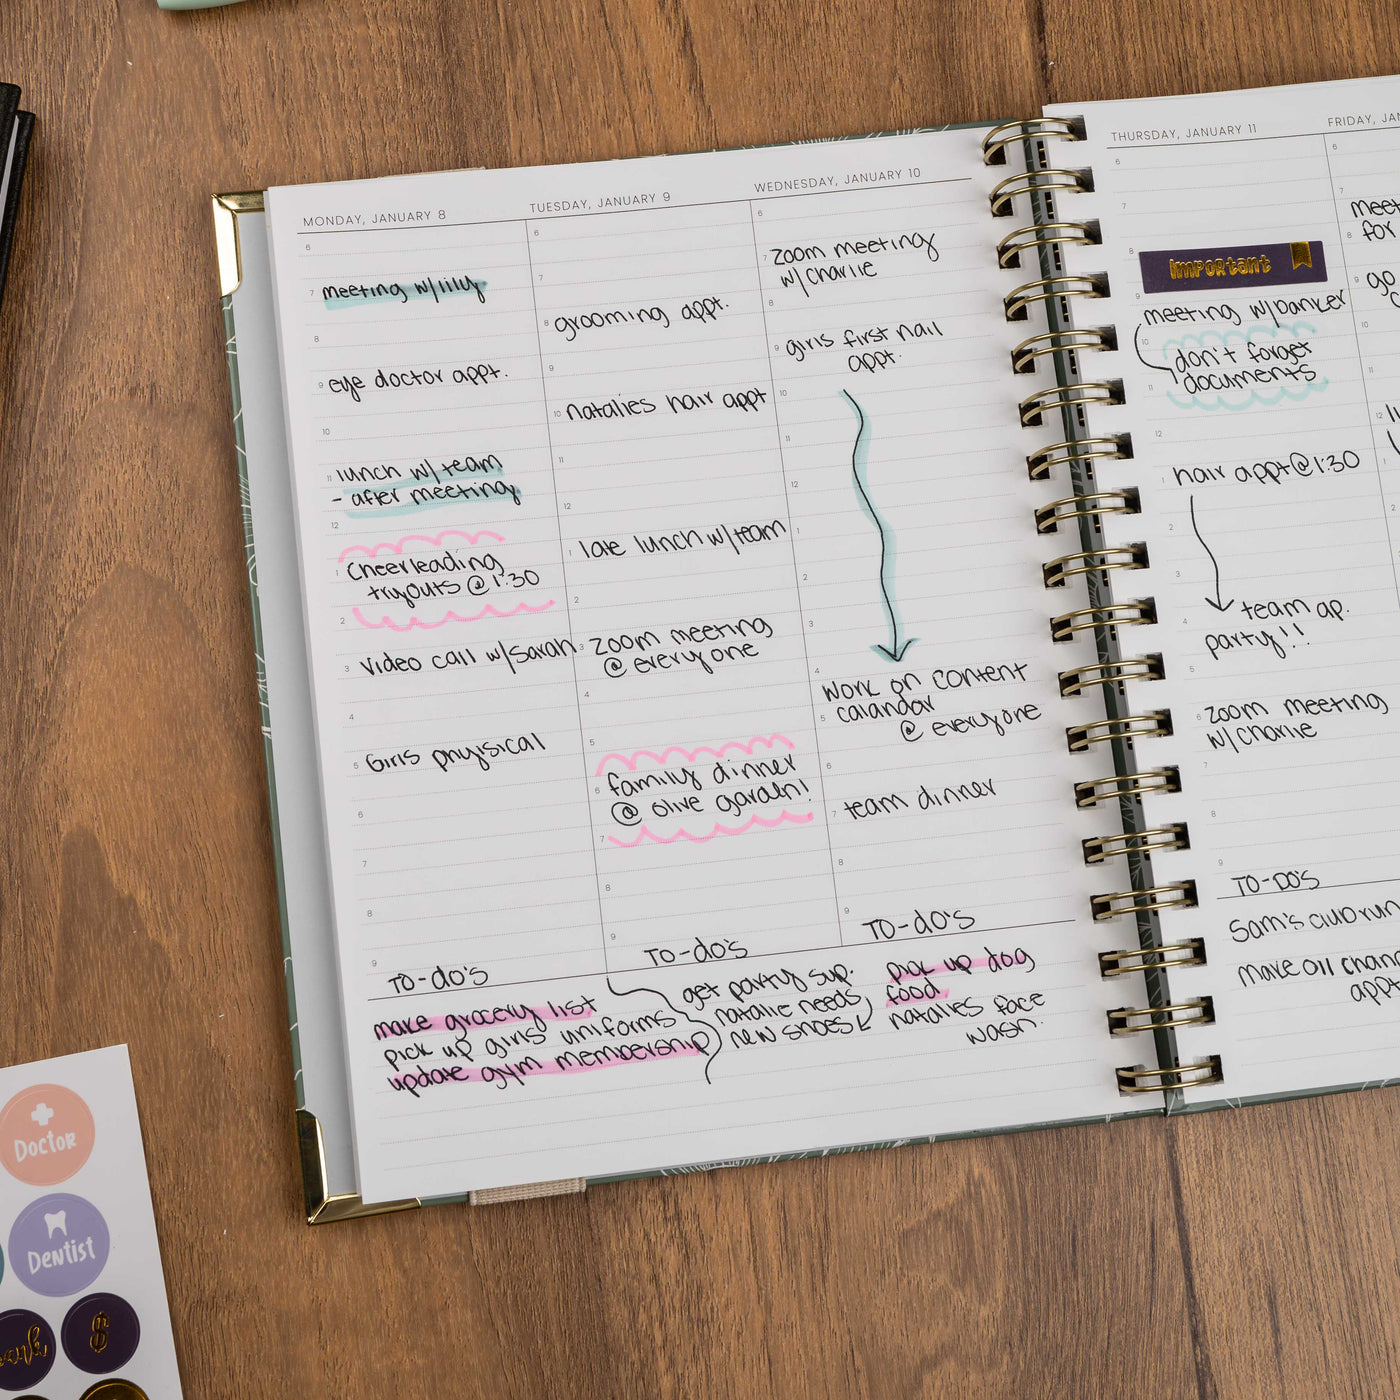 MONDAY, JANUARY 8
6
7 meeting w/lily
8
9 eye doctor appt.
10
11 lunch w/ team
- after meeting
12
1 Cheerleading
tryouts @ 1:30
2
3 video call w/Sarah
4
5 Girls phyisical
6
7
8
9
TO-do's
make grocery list
pick up girls uniforms
update gym membership
TUESDAY, JANUARY 9
6
7
8 grooming appt.
9
10 natalies hair appt
11
12
1 late lunch w/team
2
3 Zoom meeting
@ everyone
4
5
6 family dinner
@ olive garden!
7
8
9
TO-do's
get party sup.
natalie needs
new shoes
WEDNESDAY, JANUARY 10
6
7 zoom meeting
w/ Charlie
8
9 girls first nail
appt.
10
11
12
1
2
3
4
work on content
5 calandar
@ everyone
6
7 team dinner
8
9
TO-do's
pick up dog
food
natalies face
wash.
THURSDAY, JANUARY 11
6
7
8
Important
9
meeting w/banker
10
don't forget
11 documents
12
1 hair appt @ 1:30
2
3
team ap.
4 party!!
5
6 zoom meeting
w/ Charlie
7
8
9
TO-DO'S
Sam's club run
make oil chan
appt
FRIDAY, JAN
6
7
meet
8 for
9 go
10
12
1
2
Doctor
Dentist
$